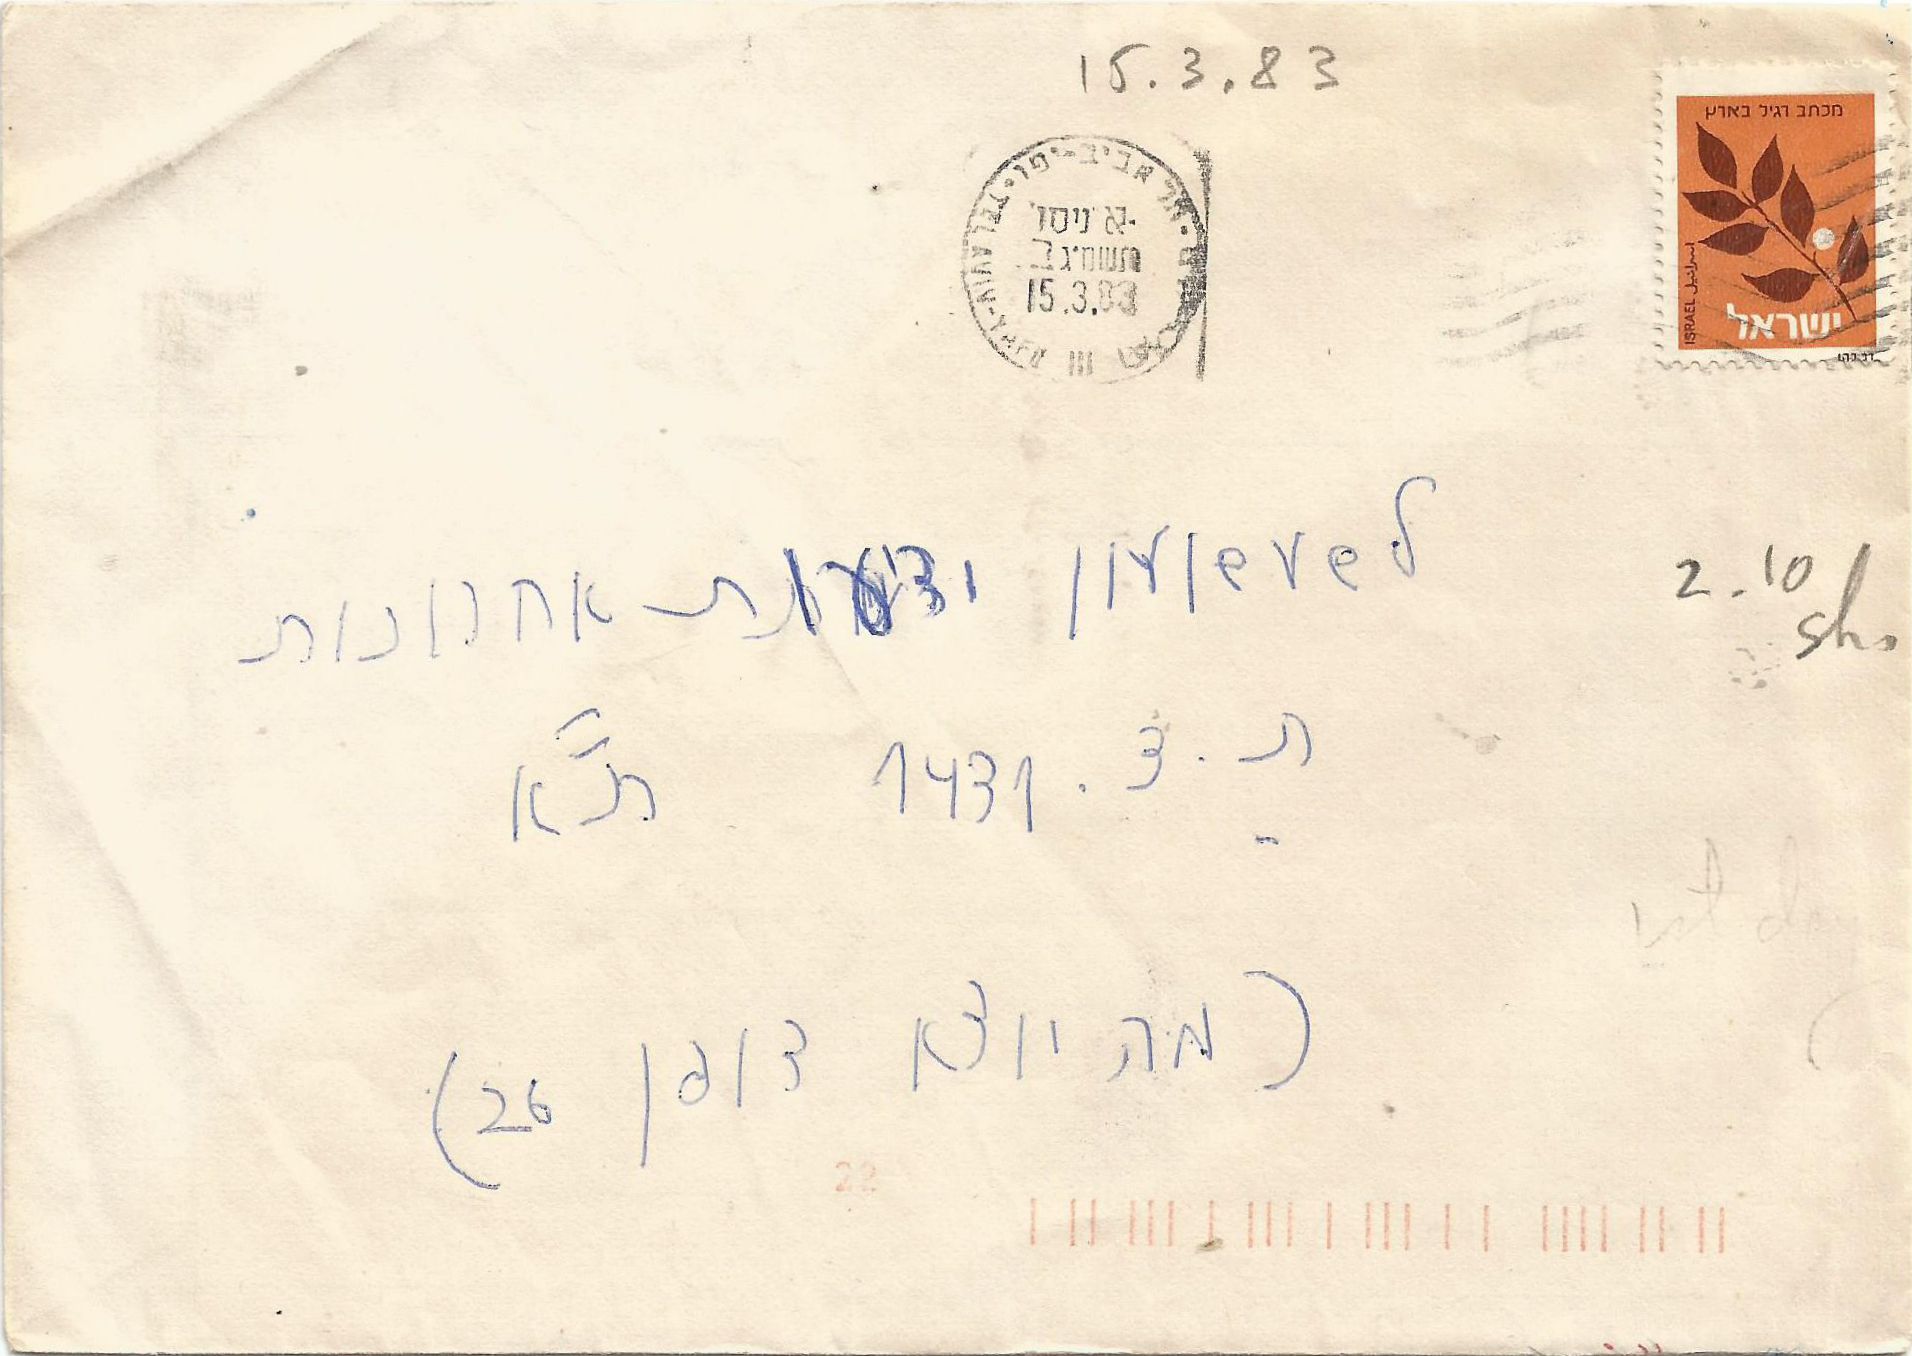 15.3.83
מכתב רגיל בארץ
ISRAEL اسرائيل
ישראל
תל-אביב-יפו
א ניסן
תשמ"ג
15.3.83
לשעשועון ידיעות אחרונות
2.10
sh.
ת.ד. 1431 ת"א
1st day
(מה יוצא דופן 26)
22